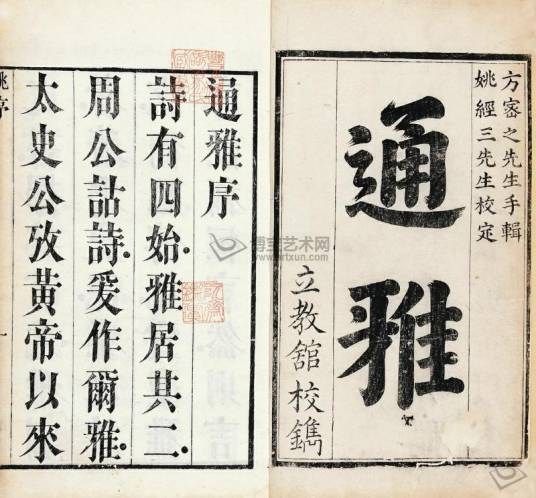 方密之先生手輯
姚經三先生校定
通雅
立教舘校鐫
通雅序
詩有四始雅居其二
周公詁詩爰作爾雅
太史公攷黃帝以來
姚序
一
博宝艺术网
www.artxun.com